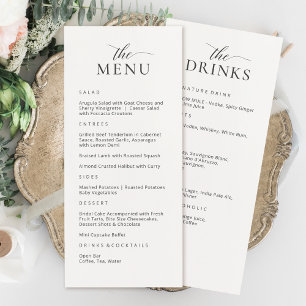 the
MENU
SALAD
Arugula Salad with Goat Cheese and
Sherry Vinaigrette | Caesar Salad
with Foccacia Croutons
ENTREES
Grilled Beef Tenderloin in Cabernet
Sauce, Roasted Garlic, Asparagus
with Lemon Demi
Braised Lamb with Roasted Squash
Almond Crusted Halibut with Curry
SIDES
Mashed Potatoes | Roasted Potatoes
Baby Vegetables
DESSERT
Bridal Cake Accompanied with Fresh
Fruit Tarts, Brie, Cheesecake,
Dessert Shots & Chocolate
Mini Cupcake Buffet
DRINKS & COCKTAILS
Open Bar
Coffee, Tea, Water
the
DRINKS
NATURE DRINK
MULE - Vodka, Spicy Ginger
Vodka, Whiskey, White Rum,
Sauvignon Blanc,
Lager, India Pale Ale,
Coffee, Water